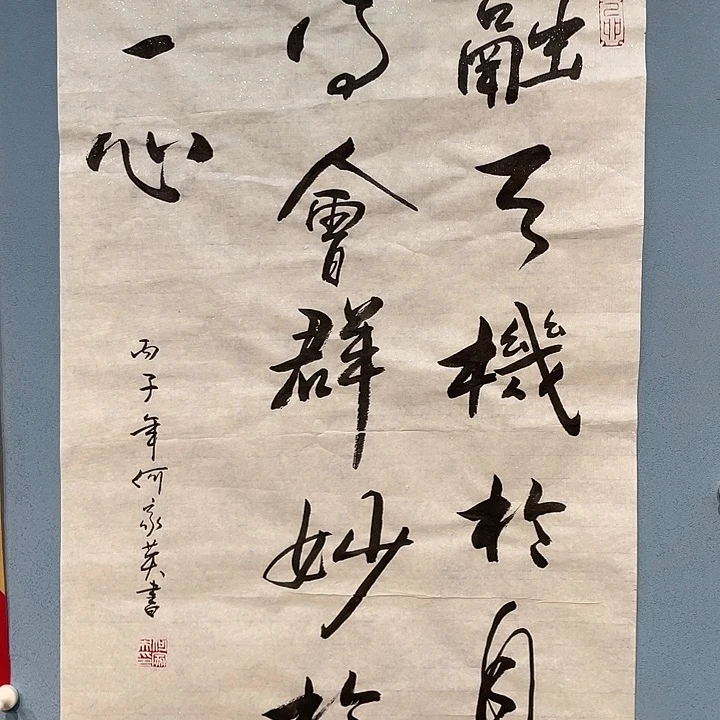 融天機於自
得會群妙於
一心
丙子年何家英書